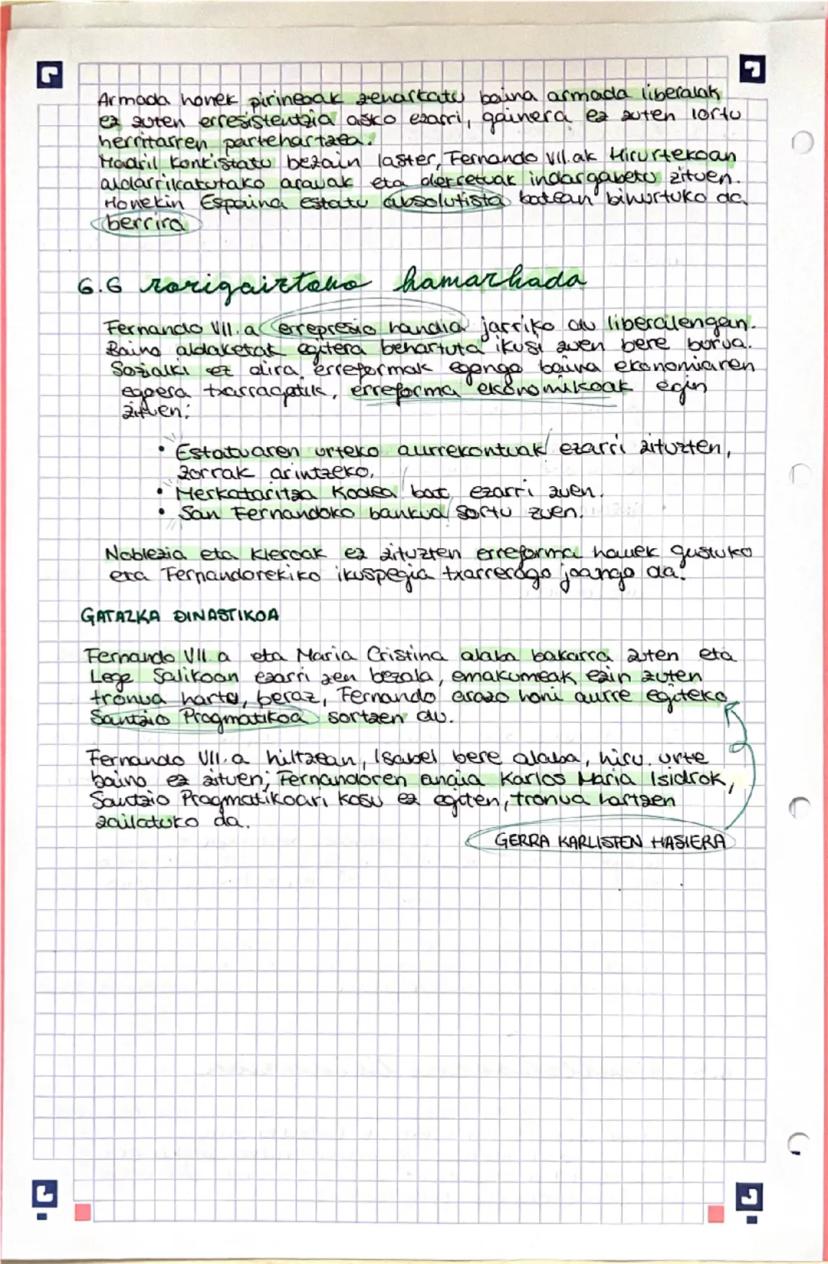 Armada honek pirineoak zeharkatu baina armada liberalak
ez zuten erresistentzia asko ezarri, gainera ez zuten lortu
herritarren partehartzea.
Madril konkistatu bezain laster, Fernando VII.ak Hirurtekoan
aldarrikatutako arauak eta dekretuak indargabetu zituen.
Honekin Espainia estatu absolutista batean bihurtuko da
berriro
6.6 zorigaiztoko hamarkada
Fernando VII.a errepresio handia jarriko du liberalengan.
Baina aldaketak egitera behartuta ikusi zuen bere burua.
Sozialki ez dira erreformak egongo baina ekonomiaren
egoera txarragatik, erreforma ekonomikoak egin
zituen:
• Estatuaren urteko aurrekontuak ezarri zituzten,
zorrak arintzeko.
• Merkataritza Kodea bat ezarri zuen.
• San Fernandoko bankua sortu zuen.
Noblezia eta kleroak ez zituzten erreforma hauek gustuko
eta Fernandorekiko ikuspegia txarrerago joango da.
GATAZKA DINASTIKOA
Fernando VII.a eta Maria Cristina alaba bakarra zuten eta
Lege Salikoan ezarri zen bezala, emakumeak ezin zuten
tronua hartu, beraz, Fernando arazo honi aurre egiteko
Santzio Pragmatikoa sortzen du.
Fernando VII.a hiltzean, Isabel bere alaba, hiru urte
baino ez zituen; Fernandoren anaia Karlos Maria Isidrok,
Santzio Pragmatikoari kasu ez egiten, tronua hartzen
zailatuko da.
GERRA KARLISTEN HASIERA